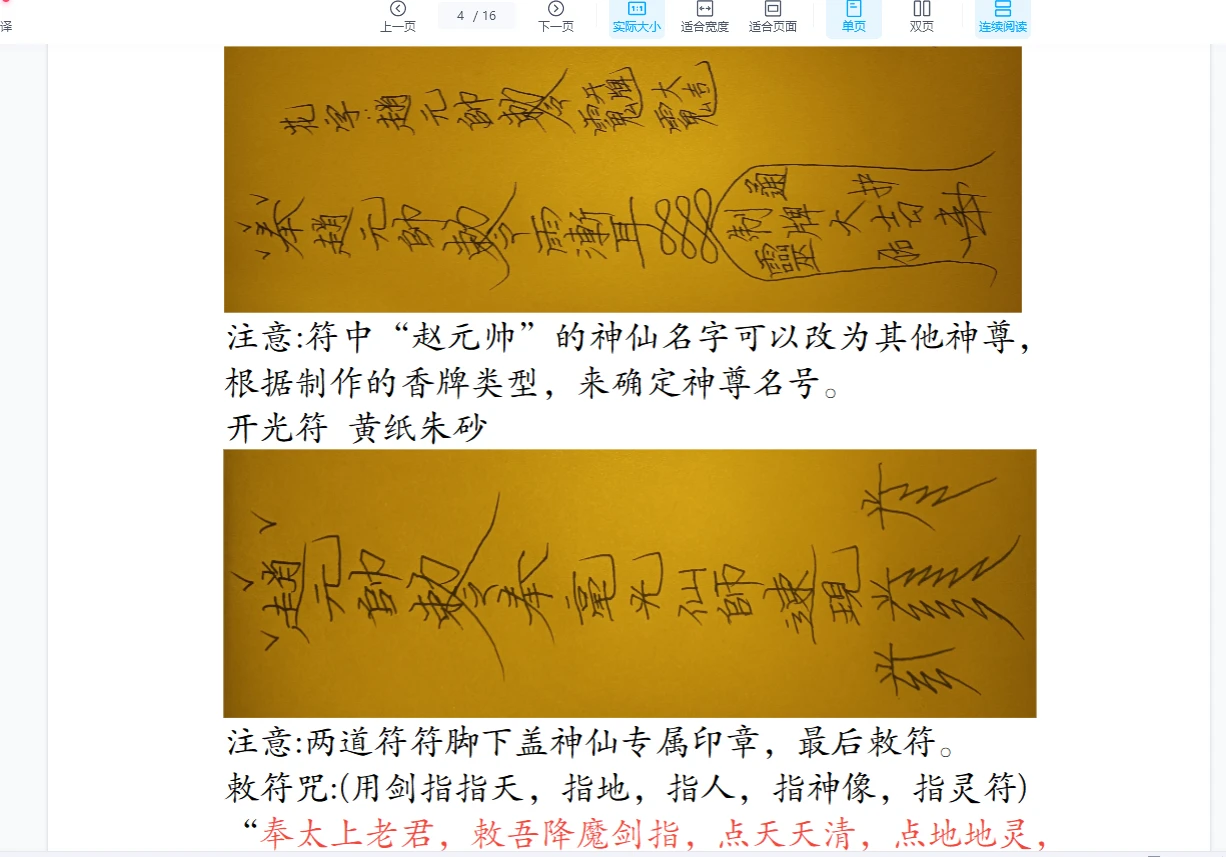 译
上一页
4 / 16
下一页
实际大小
适合宽度
适合页面
单页
双页
连续阅读
花字:趙元帥敕令
奉趙元帥敕令
注意:符中“赵元帅”的神仙名字可以改为其他神尊，
根据制作的香牌类型，来确定神尊名号。
开光符 黄纸朱砂
趙元帥敕令奉毫光仙師速現
注意:两道符符脚下盖神仙专属印章，最后敕符。
敕符咒:(用剑指指天，指地，指人，指神像，指灵符)
“奉太上老君，敕吾降魔剑指，点天天清，点地地灵，